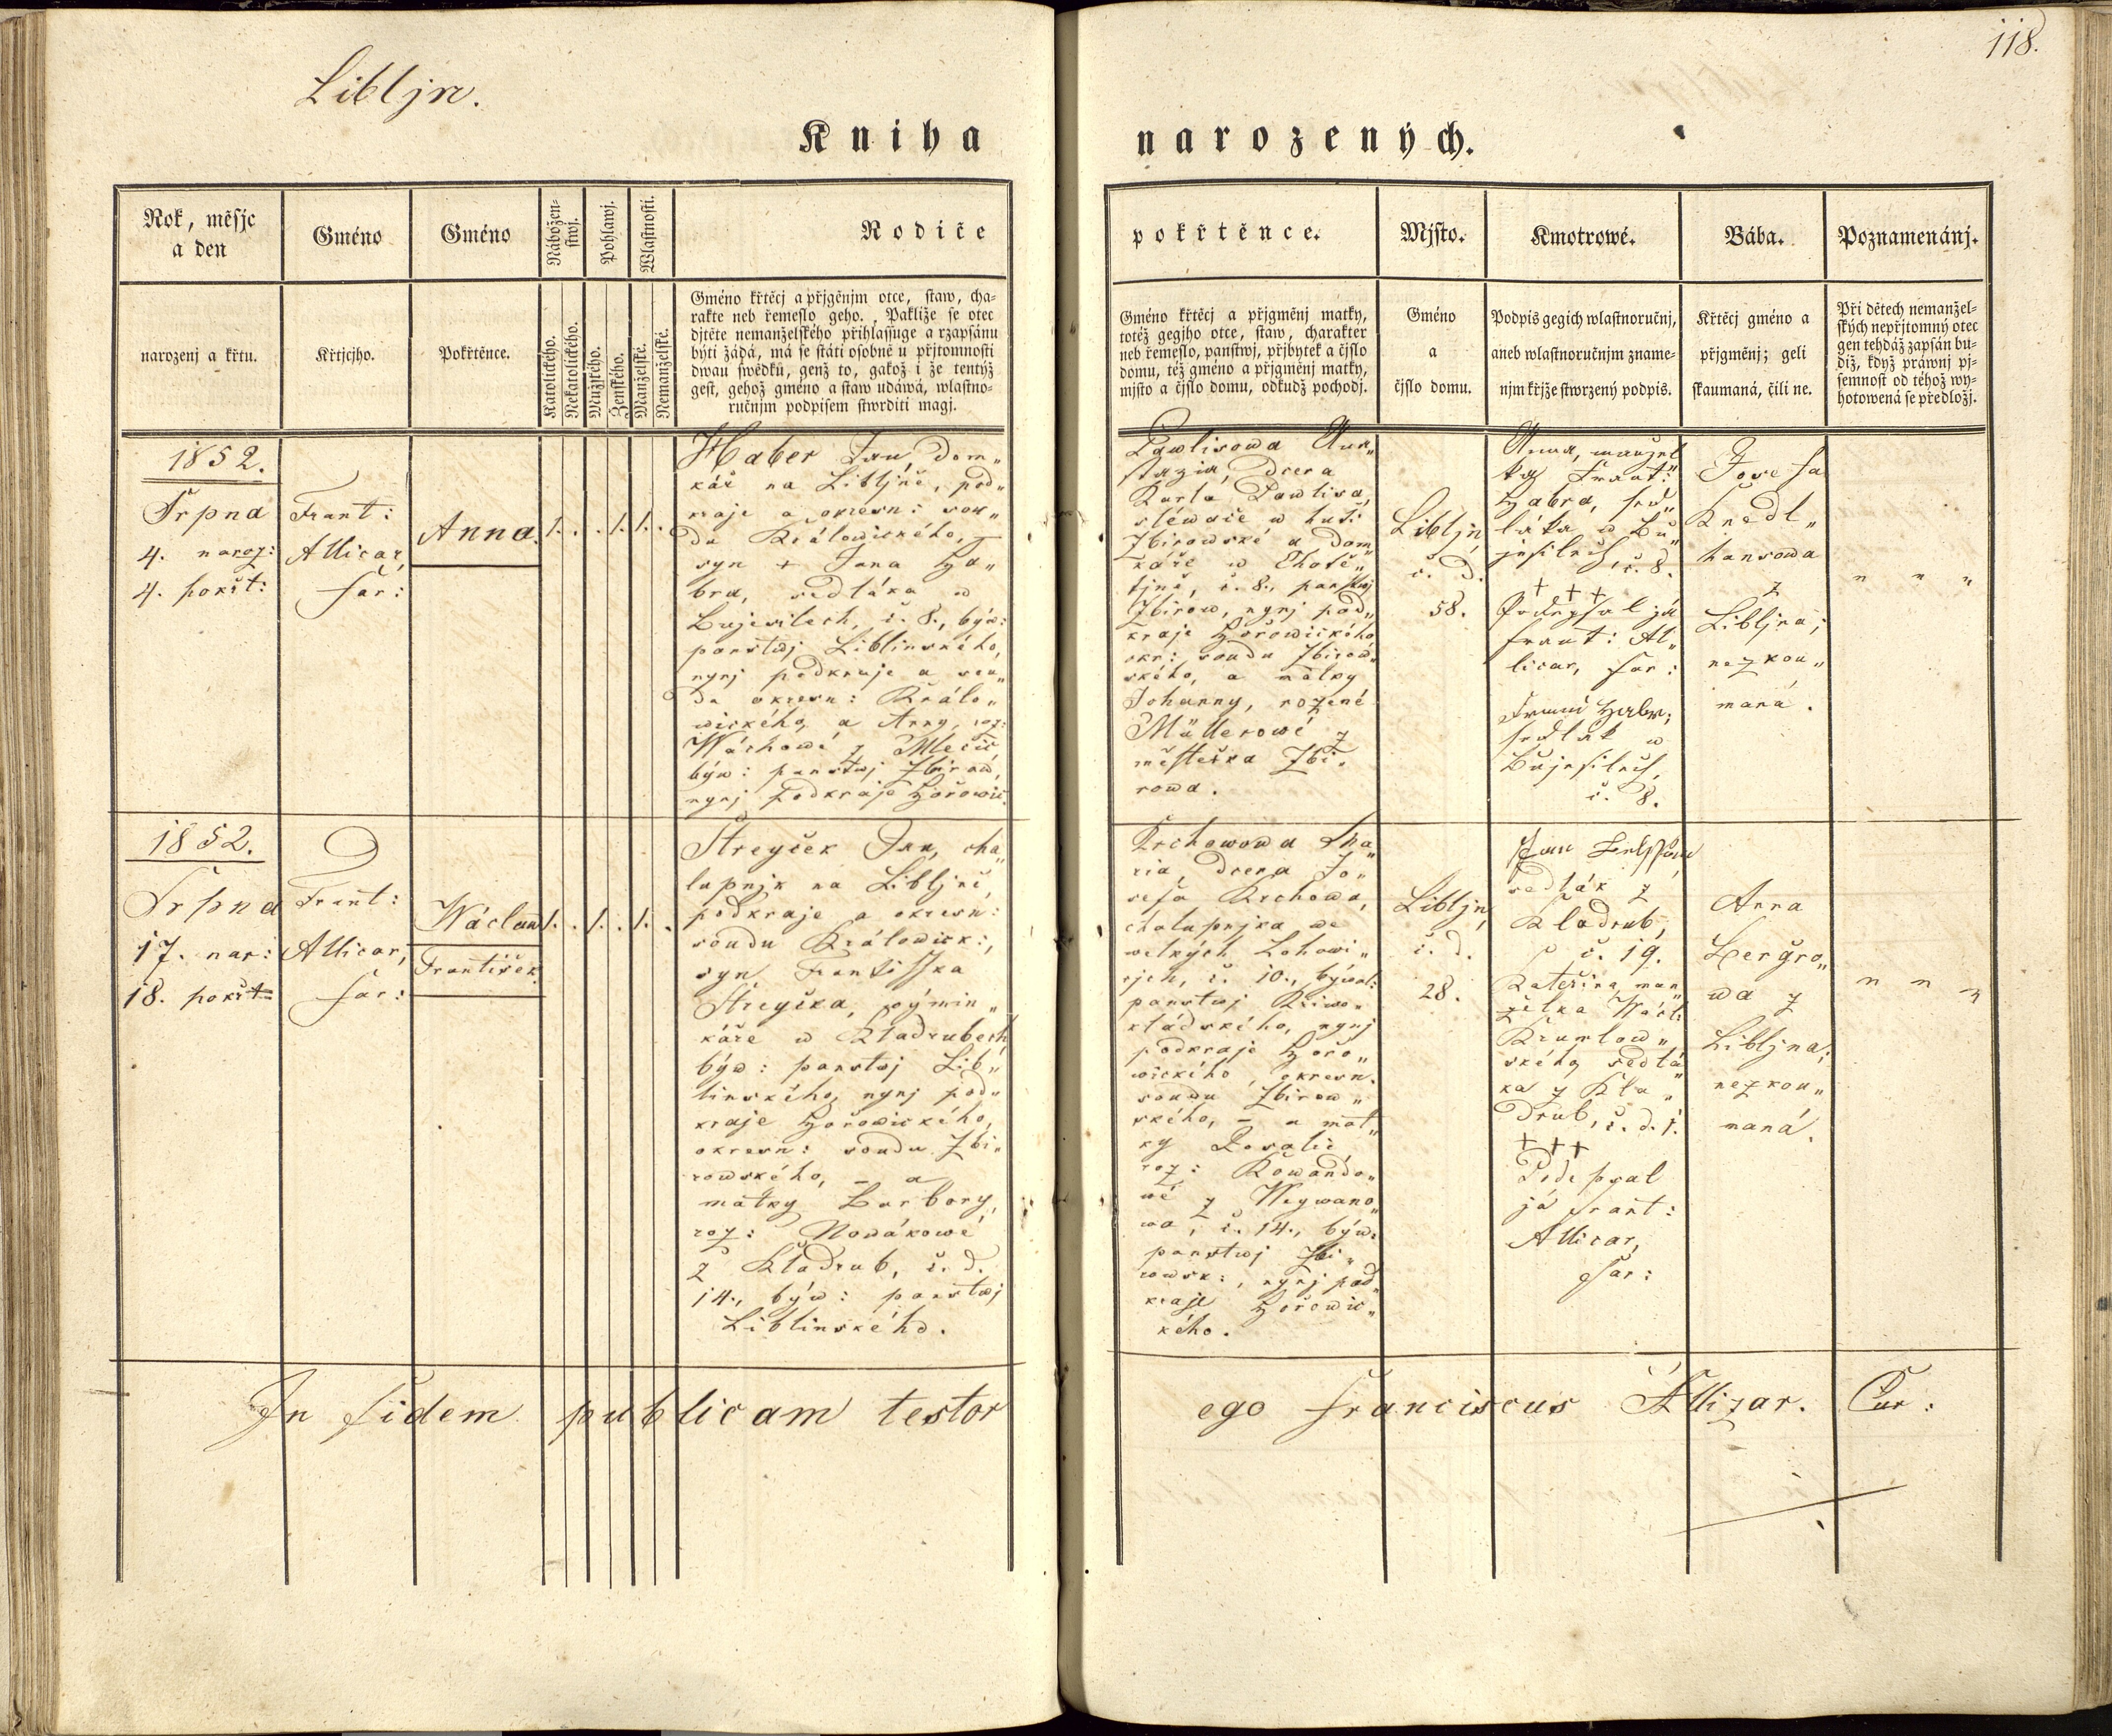 118.
Libljn.
Kniha narozených.
Rok, měsjc
a den
Gméno
Gméno
Nábožen-
stwj.
Pohlawj.
Wlastnosti.
Rodiče
pokřtěnce.
Mjsto.
Kmotrowé.
Bába.
Poznamenánj.
narozenj a křtu.
Křtjcjho.
Pokřtěnce.
Katolického.
Nekatolického.
Mužského.
Ženského.
Manželské.
Nemanželské.
Gméno křtěcj a přjgěnjm otce, staw, cha-
rakte neb řemeslo geho. Pakliže se otec
djtěte nemanželského přihlassuge a rzapsánu
býti žádá, má se státi osobně u přjtomnosti
dwau swědků, genž to, gakož i že tentýž
gest, gehož gméno a staw udáwá, wlastno-
ručnjm podpisem stwrditi magj.
Gméno křtěcj a přjgměnj matky,
totéž gegjho otce, staw, charakter
neb řemeslo, panstwj, přjbytek a čjslo
domu, též gméno a přjgměnj matky,
mjsto a čjslo domu, odkudž pochodj.
Gméno
a
čjslo domu.
Podpis gegich wlastnoručnj,
aneb wlastnoručnjm zname-
njm křjže stwrzený podpis.
Křtěcj gméno a
přjgměnj; geli
skaumaná, čili ne.
Při dětech nemanžel-
ských nepřjtomný otec
gen tehdáž zapsán bu-
diž, když práwnj pj-
semnost od téhož wy-
hotowená se předložj.
1852.
Srpna
4. naroz:
4. pokřt:
Frant:
Allicar,
far:
Anna.
1. . . 1. 1. .
Haber Jan, dom„
kář na Libljně, pod„
kraje a okresn: sou„
du Králowického, –
syn + Jana Ha„
bra, sedláka w
Bujesilech, č. 8., býw:
panstwj Liblinského,
nynj podkraje a sou„
du okresn: Králo„
wického, a Anny, roz:
Wáchowé z Mlečic
býw: panstwj Zbirow,
nynj podkraje Hořowic.
Pawlisowa Ana„
stazia, dcera
Karla Pawlisa,
sléwače w huti
Zbirowské a dom„
káře w Chotě„
tjně, č. 8., panstwj
Zbirow, nynj pod„
kraje Hořowického
okr: soudu Zbirow„
ského, a matky
Johanny, rozené
Müllerowé z
městečka Zbi„
rowa.
Libljn
č. d.
58.
Anna, manžel„
ka Frant:
Habra, sed„
láka w Bu„
jesilech, č. 8.
+ + +
Podepsal já
Frant: Al„
licar, far:
Frant Habr,
sedlák w
Bujesilech,
č. 8.
Josefa
Knedl„
hansowa
z
Libljna;
nezkou„
maná.
„ „ „
1852.
Srpna
17. nar:
18. pokřt:
Frant:
Allicar,
far:
Wáclaw
František.
1. . 1. . 1. .
Streyček Jan, cha„
lupnjk na Libljně,
podkraje a okresn:
soudu Králowick:,
syn Františka
Streyčka, výmin„
káře w Kladrubech
býw: panstwj Lib„
linského, nynj pod„
kraje Hořowického,
okresn: soudu Zbi„
rowského, – a
matky Barbory,
roz: Nowákowé
z Kladrub, č. d.
14., býw: panstwj
Liblinského.
Krchowowa Ma„
ria, dcera Jo„
sefa Krchowa,
chalupnjka we
welkých Lohowi„
cjch, č. 10., býwal:
panstwj Křiwo„
kládského, nynj
podkraje Hořo„
wického, okresn.
soudu Zbirow„
ského, – a mat„
ky Rosalie,
roz: Kowando„
wé z Weywano„
wa, č. 14., býw:
panstwj Zbi„
rowsk:, nynj pod„
kraje Hořowic„
kého.
Libljn,
č. d.
28.
Jan
sedlák z
Kladrub,
č. 19.
Kateřina, man„
želka Wácl:
Krumlow„
ského, sedlá„
ka z Kla„
drub, č. d. 1.
+ + +
Podepsal
já Frant:
Allicar,
far:
Anna
Bergro„
wa z
Libljna;
nezkou„
maná.
„ „ „
In fidem publicam testor ego Franciscus Allizar. Cur: